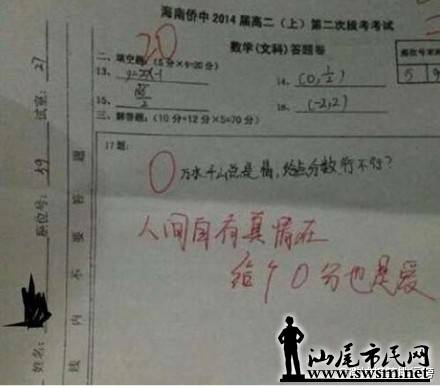 海南侨中2014届高二(上)第二次段考考试
数学(文科)答题卷
20
二、填空题(5分×4=20分)
13、y=2x-1
14、(0, 1/2)
15、
16、(-2,2)
三、解答题:(10分+12分×5=70分)
17题:
0
万水千山总是情,给点分数行不行?
人间自有真情在
给个0分也是爱
试室:27
座位号:59
姓名:
线内不要答题
座位号末两
5 9
汕尾市民网
www.swsm.net